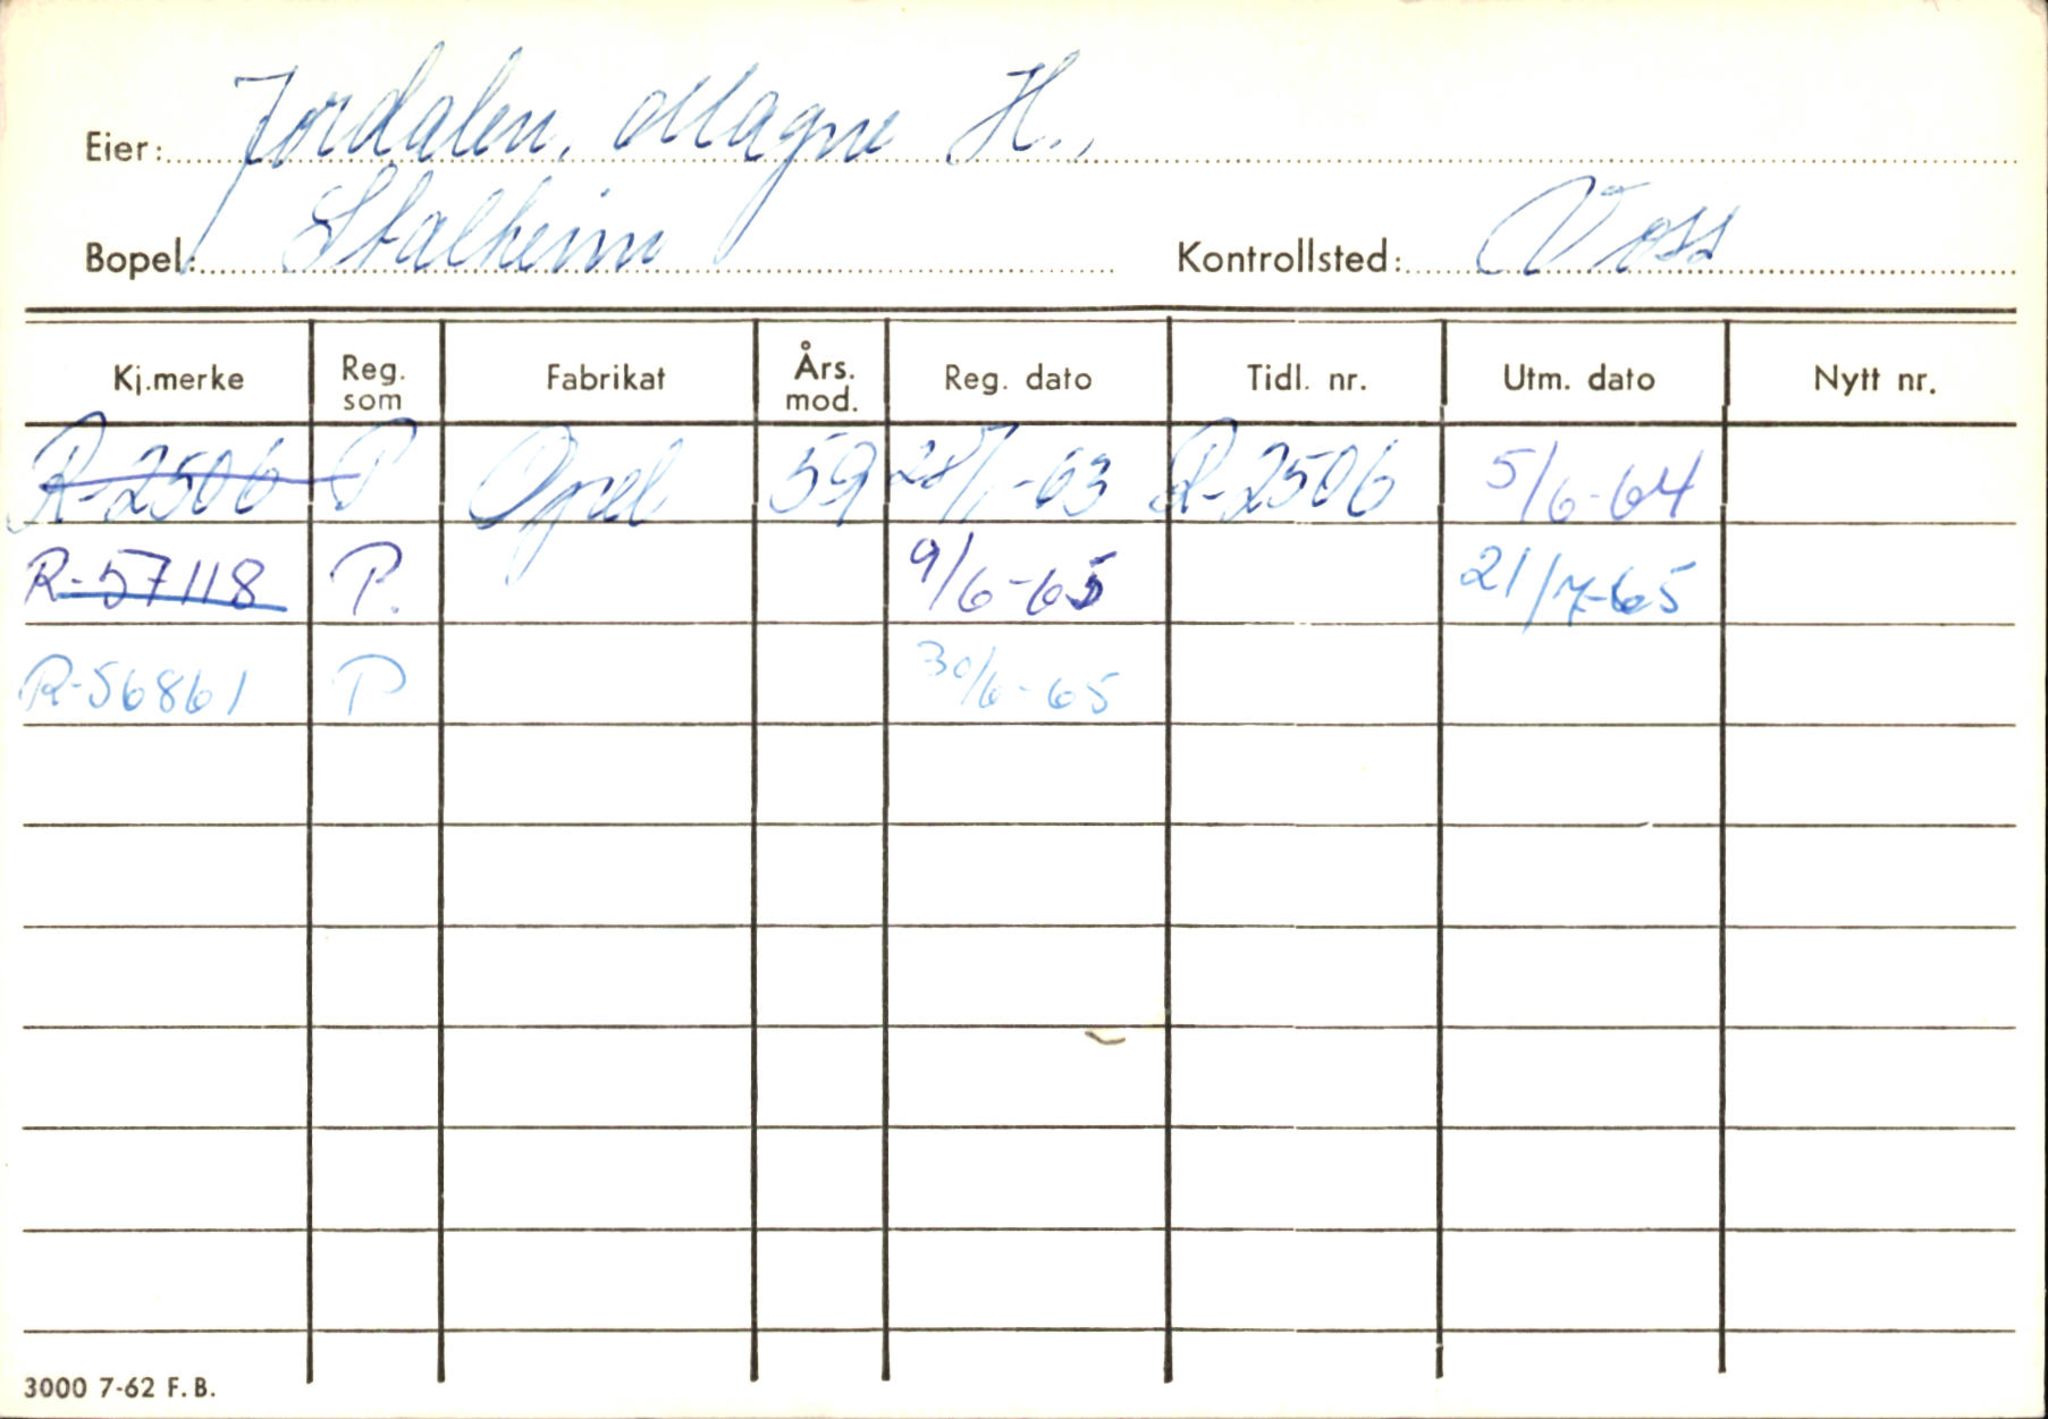 Eier: Jordalen, Magne H.,
Bopel: Stalheim Kontrollsted: Voss
Kj.merke Reg. som Fabrikat Års. mod. Reg. dato Tidl. nr. Utm. dato Nytt nr.
R-2506 P Opel 59 28/7-63 R-2506 5/6-64
R-57118 P. 9/6-65 21/7-65
R-56861 P 30/6-65
3000 7-62 F.B.